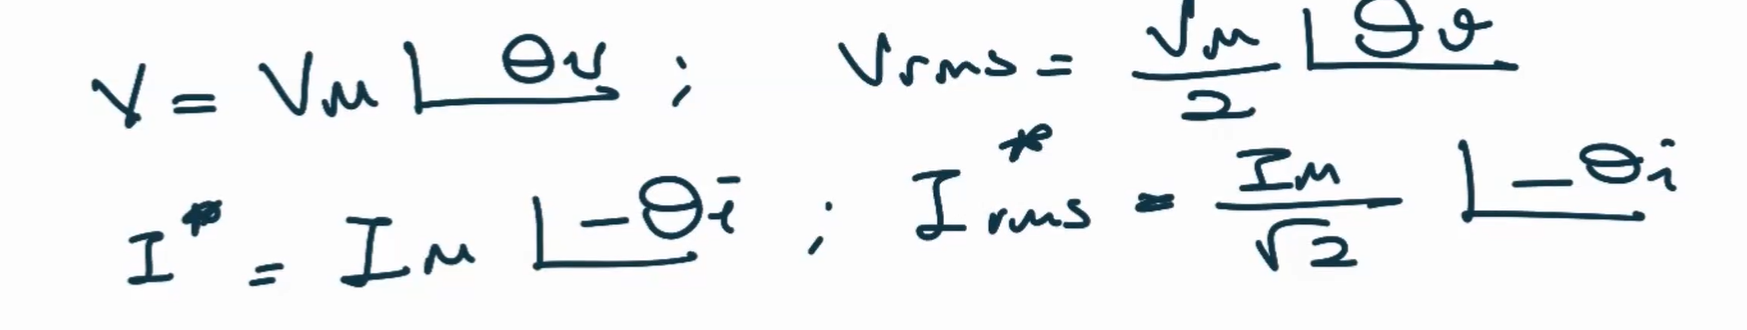 V = Vm ∠θv ; Vrms = Vm/2 ∠θv
I* = Im ∠-θi ; I*rms = Im/√2 ∠-θi